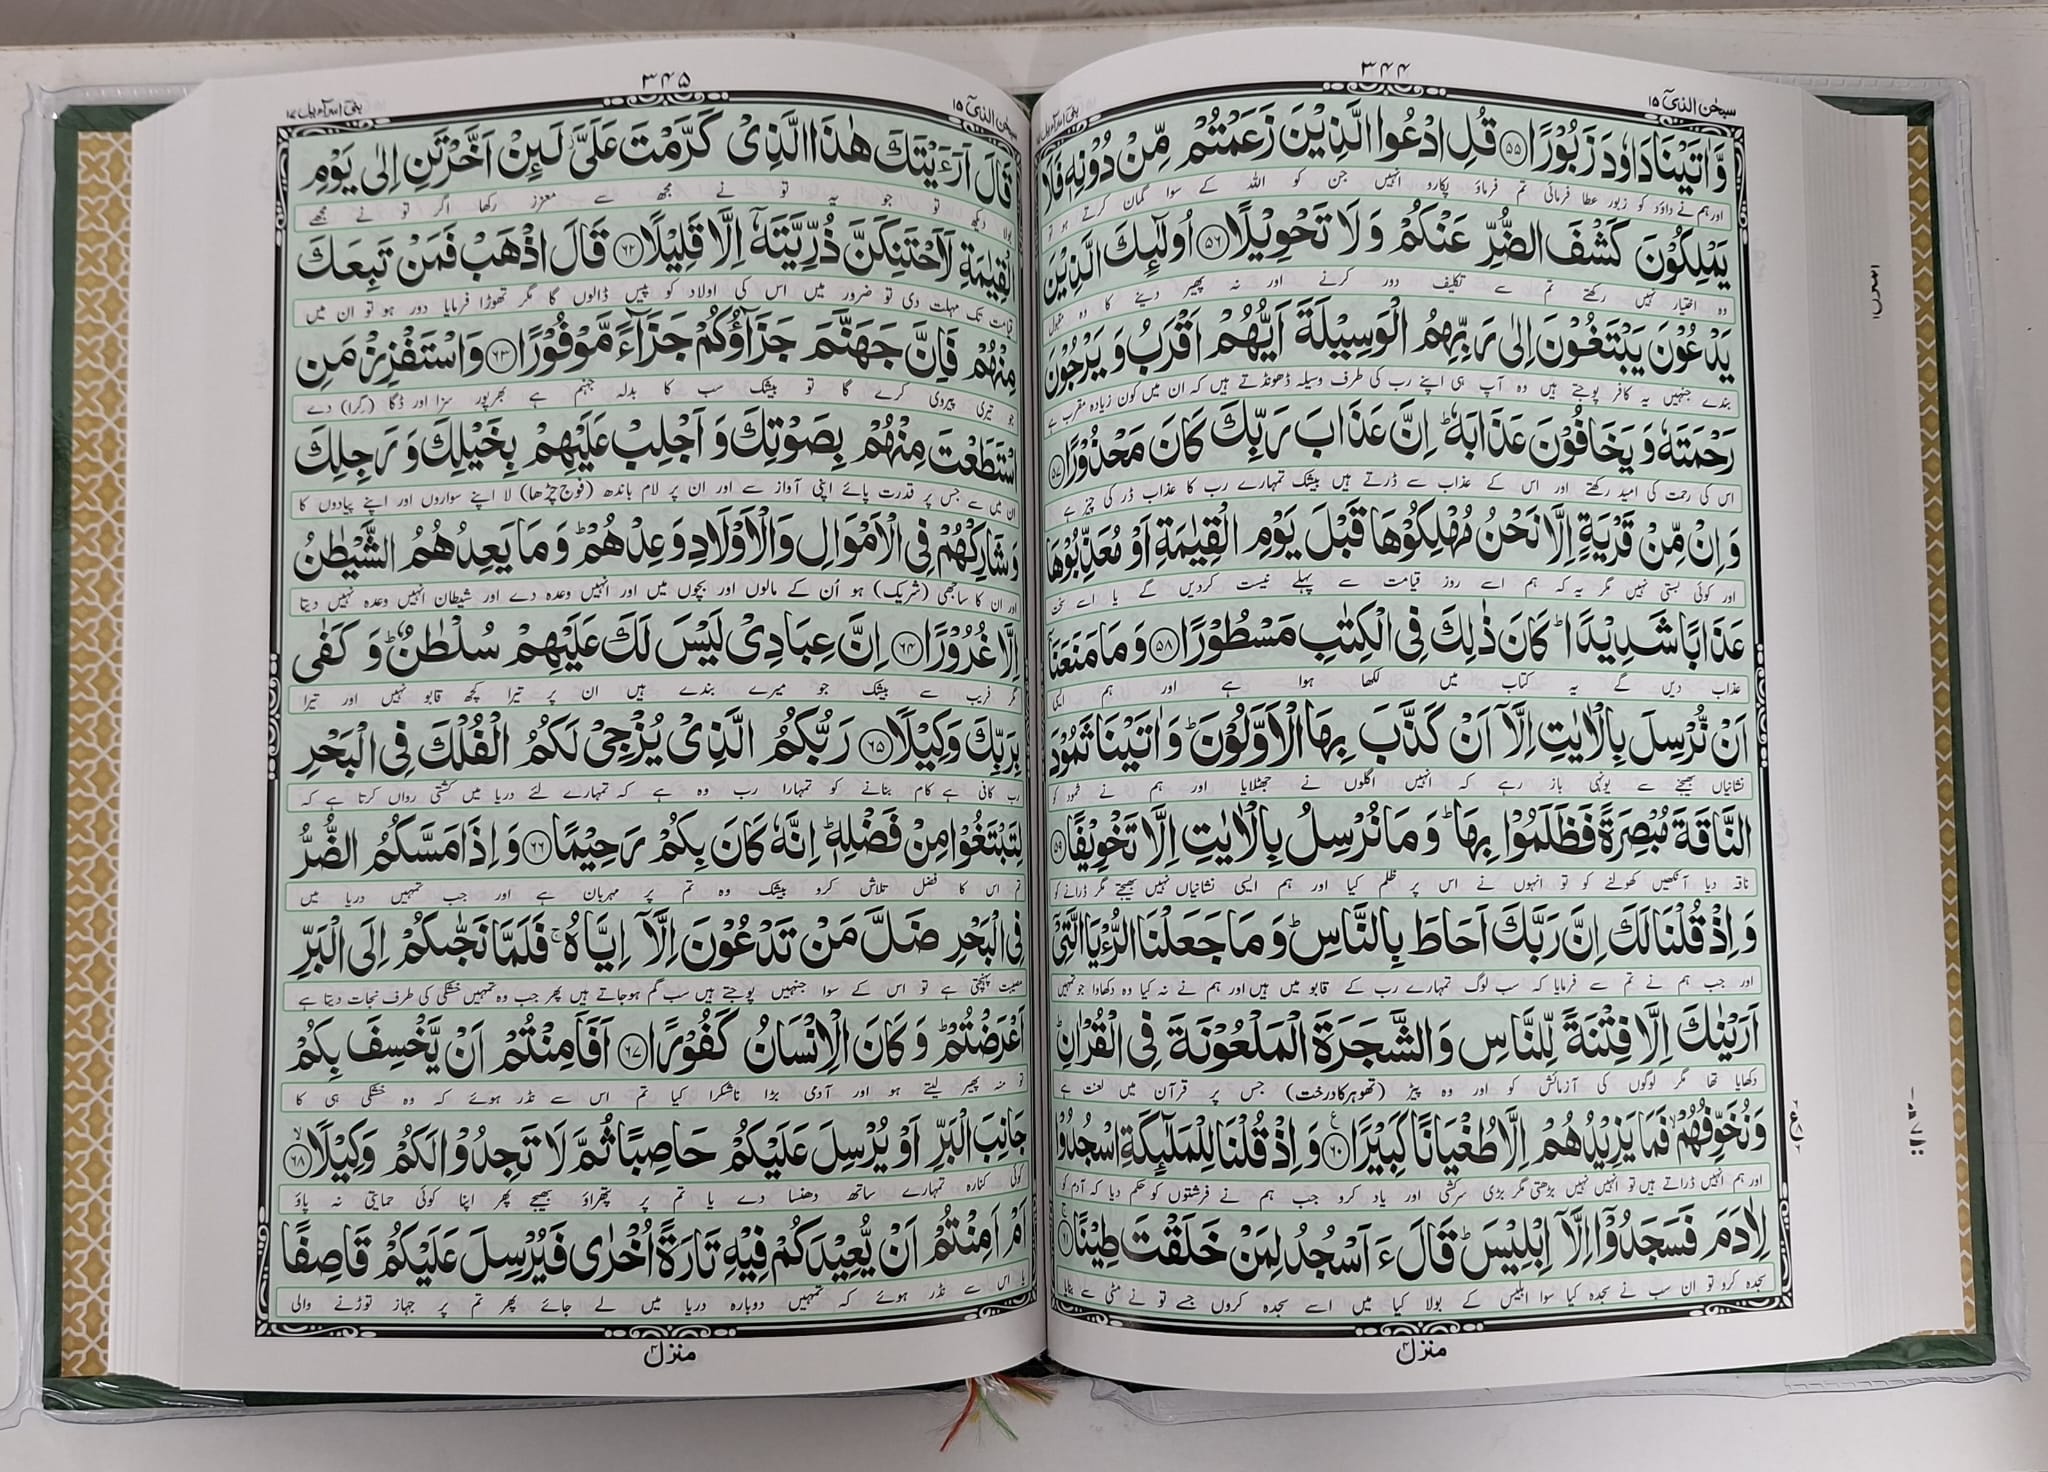 ۳۴۴
سبحٰن الذیٓ ۱۵
وَّاٰتَيْنَا دَاوٗدَ زَبُوْرًا ۵۵ قُلِ ادْعُوا الَّذِيْنَ زَعَمْتُمْ مِّنْ دُوْنِهٖ فَلَا
اور ہم نے داؤد کو زبور عطا فرمائی تم فرماؤ پکارو انہیں جن کو اللہ کے سوا گمان کرتے ہو تو
يَمْلِكُوْنَ كَشْفَ الضُّرِّ عَنْكُمْ وَلَا تَحْوِيْلًا ۵۶ اُولٰٓئِكَ الَّذِيْنَ
وہ اختیار نہیں رکھتے تم سے تکلیف دور کرنے اور نہ پھیر دینے کا وہ مقبول
يَدْعُوْنَ يَبْتَغُوْنَ اِلٰى رَبِّهِمُ الْوَسِيْلَةَ اَيُّهُمْ اَقْرَبُ وَيَرْجُوْنَ
بندے جنہیں یہ کافر پوجتے ہیں وہ آپ ہی اپنے رب کی طرف وسیلہ ڈھونڈتے ہیں کہ ان میں کون زیادہ مقرب ہے
رَحْمَتَهٗ وَيَخَافُوْنَ عَذَابَهٗ ؕ اِنَّ عَذَابَ رَبِّكَ كَانَ مَحْذُوْرًا ۵۷
اس کی رحمت کی امید رکھتے اور اس کے عذاب سے ڈرتے ہیں بیشک تمہارے رب کا عذاب ڈر کی چیز ہے
وَاِنْ مِّنْ قَرْيَةٍ اِلَّا نَحْنُ مُهْلِكُوْهَا قَبْلَ يَوْمِ الْقِيٰمَةِ اَوْ مُعَذِّبُوْهَا
اور کوئی بستی نہیں مگر یہ کہ ہم اسے روز قیامت سے پہلے نیست کردیں گے یا اسے سخت
عَذَابًا شَدِيْدًا ؕ كَانَ ذٰلِكَ فِى الْكِتٰبِ مَسْطُوْرًا ۵۸ وَمَا مَنَعَنَاۤ
عذاب دیں گے یہ کتاب میں لکھا ہوا ہے اور ہم ایسی
اَنْ نُّرْسِلَ بِالْاٰيٰتِ اِلَّاۤ اَنْ كَذَّبَ بِهَا الْاَوَّلُوْنَ ؕ وَاٰتَيْنَا ثَمُوْدَ
نشانیاں بھیجنے سے یونہی باز رہے کہ انہیں اگلوں نے جھٹلایا اور ہم نے ثمود کو
النَّاقَةَ مُبْصِرَةً فَظَلَمُوْا بِهَا ؕ وَمَا نُرْسِلُ بِالْاٰيٰتِ اِلَّا تَخْوِيْفًا ۵۹
ناقہ دیا آنکھیں کھولنے کو تو انہوں نے اس پر ظلم کیا اور ہم ایسی نشانیاں نہیں بھیجتے مگر ڈرانے کو
وَاِذْ قُلْنَا لَكَ اِنَّ رَبَّكَ اَحَاطَ بِالنَّاسِ ؕ وَمَا جَعَلْنَا الرُّءْيَا الَّتِىْۤ
اور جب ہم نے تم سے فرمایا کہ سب لوگ تمہارے رب کے قابو میں ہیں اور ہم نے نہ کیا وہ دکھاوا جو تمہیں
اَرَيْنٰكَ اِلَّا فِتْنَةً لِّلنَّاسِ وَالشَّجَرَةَ الْمَلْعُوْنَةَ فِى الْقُرْاٰنِ ؕ
دکھایا تھا مگر لوگوں کی آزمائش کو اور وہ پیڑ (تھوہر کا درخت) جس پر قرآن میں لعنت ہے
وَنُخَوِّفُهُمْ ۙ فَمَا يَزِيْدُهُمْ اِلَّا طُغْيَانًا كَبِيْرًا ۶۰ وَاِذْ قُلْنَا لِلْمَلٰٓئِكَةِ اسْجُدُوْا
اور ہم انہیں ڈراتے ہیں تو انہیں نہیں بڑھتی مگر بڑی سرکشی اور یاد کرو جب ہم نے فرشتوں کو حکم دیا کہ آدم کو
لِاٰدَمَ فَسَجَدُوْۤا اِلَّاۤ اِبْلِيْسَ ؕ قَالَ ءَاَسْجُدُ لِمَنْ خَلَقْتَ طِيْنًا ۶۱
سجدہ کرو تو ان سب نے سجدہ کیا سوا ابلیس کے بولا کیا میں اسے سجدہ کروں جسے تو نے مٹی سے بنایا
منزل ۴
۳۴۵
سبحٰن الذیٓ ۱۵
بنیٓ اسرآءیل ۱۷
قَالَ اَرَءَيْتَكَ هٰذَا الَّذِىْ كَرَّمْتَ عَلَىَّ لَئِنْ اَخَّرْتَنِ اِلٰى يَوْمِ
بولا دیکھ تو جو یہ تو نے مجھ سے معزز رکھا اگر تو نے مجھے
الْقِيٰمَةِ لَاَحْتَنِكَنَّ ذُرِّيَّتَهٗۤ اِلَّا قَلِيْلًا ۶۲ قَالَ اذْهَبْ فَمَنْ تَبِعَكَ
قیامت تک مہلت دی تو ضرور میں اس کی اولاد کو پیس ڈالوں گا مگر تھوڑا فرمایا دور ہو تو ان میں
مِنْهُمْ فَاِنَّ جَهَنَّمَ جَزَآؤُكُمْ جَزَآءً مَّوْفُوْرًا ۶۳ وَاسْتَفْزِزْ مَنِ
جو تیری پیروی کرے گا تو بیشک سب کا بدلہ جہنم ہے بھرپور سزا اور ڈگا (گرا) دے
اسْتَطَعْتَ مِنْهُمْ بِصَوْتِكَ وَاَجْلِبْ عَلَيْهِمْ بِخَيْلِكَ وَرَجِلِكَ
ان میں سے جس پر قدرت پائے اپنی آواز سے اور ان پر لام باندھ (فوج چڑھا) لا اپنے سواروں اور اپنے پیادوں کا
وَشَارِكْهُمْ فِى الْاَمْوَالِ وَالْاَوْلَادِ وَعِدْهُمْ ؕ وَمَا يَعِدُهُمُ الشَّيْطٰنُ
اور ان کا ساجھی (شریک) ہو اُن کے مالوں اور بچوں میں اور انہیں وعدہ دے اور شیطان انہیں وعدہ نہیں دیتا
اِلَّا غُرُوْرًا ۶۴ اِنَّ عِبَادِىْ لَيْسَ لَكَ عَلَيْهِمْ سُلْطٰنٌ ؕ وَكَفٰى
مگر فریب سے بیشک جو میرے بندے ہیں ان پر تیرا کچھ قابو نہیں اور تیرا
بِرَبِّكَ وَكِيْلًا ۶۵ رَبُّكُمُ الَّذِىْ يُزْجِىْ لَكُمُ الْفُلْكَ فِى الْبَحْرِ
رب کافی ہے کام بنانے کو تمہارا رب وہ ہے کہ تمہارے لئے دریا میں کشتی رواں کرتا ہے کہ
لِتَبْتَغُوْا مِنْ فَضْلِهٖ ؕ اِنَّهٗ كَانَ بِكُمْ رَحِيْمًا ۶۶ وَاِذَا مَسَّكُمُ الضُّرُّ
تم اس کا فضل تلاش کرو بیشک وہ تم پر مہربان ہے اور جب تمہیں دریا میں
فِى الْبَحْرِ ضَلَّ مَنْ تَدْعُوْنَ اِلَّاۤ اِيَّاهُ ۚ فَلَمَّا نَجّٰىكُمْ اِلَى الْبَرِّ
مصیبت پہنچتی ہے تو اس کے سوا جنہیں پوجتے ہیں سب گم ہوجاتے ہیں پھر جب وہ تمہیں خشکی کی طرف نجات دیتا ہے
اَعْرَضْتُمْ ؕ وَكَانَ الْاِنْسَانُ كَفُوْرًا ۶۷ اَفَاَمِنْتُمْ اَنْ يَّخْسِفَ بِكُمْ
تو منہ پھیر لیتے ہو اور آدمی بڑا ناشکرا کیا تم اس سے نڈر ہوئے کہ وہ خشکی ہی کا
جَانِبَ الْبَرِّ اَوْ يُرْسِلَ عَلَيْكُمْ حَاصِبًا ثُمَّ لَا تَجِدُوْا لَكُمْ وَكِيْلًا ۙ ۶۸
کوئی کنارہ تمہارے ساتھ دھنسا دے یا تم پر پتھراؤ بھیجے پھر اپنا کوئی حمایتی نہ پاؤ
اَمْ اَمِنْتُمْ اَنْ يُّعِيْدَكُمْ فِيْهِ تَارَةً اُخْرٰى فَيُرْسِلَ عَلَيْكُمْ قَاصِفًا
یا اس سے نڈر ہوئے کہ تمہیں دوبارہ دریا میں لے جائے پھر تم پر جہاز توڑنے والی
منزل ۴